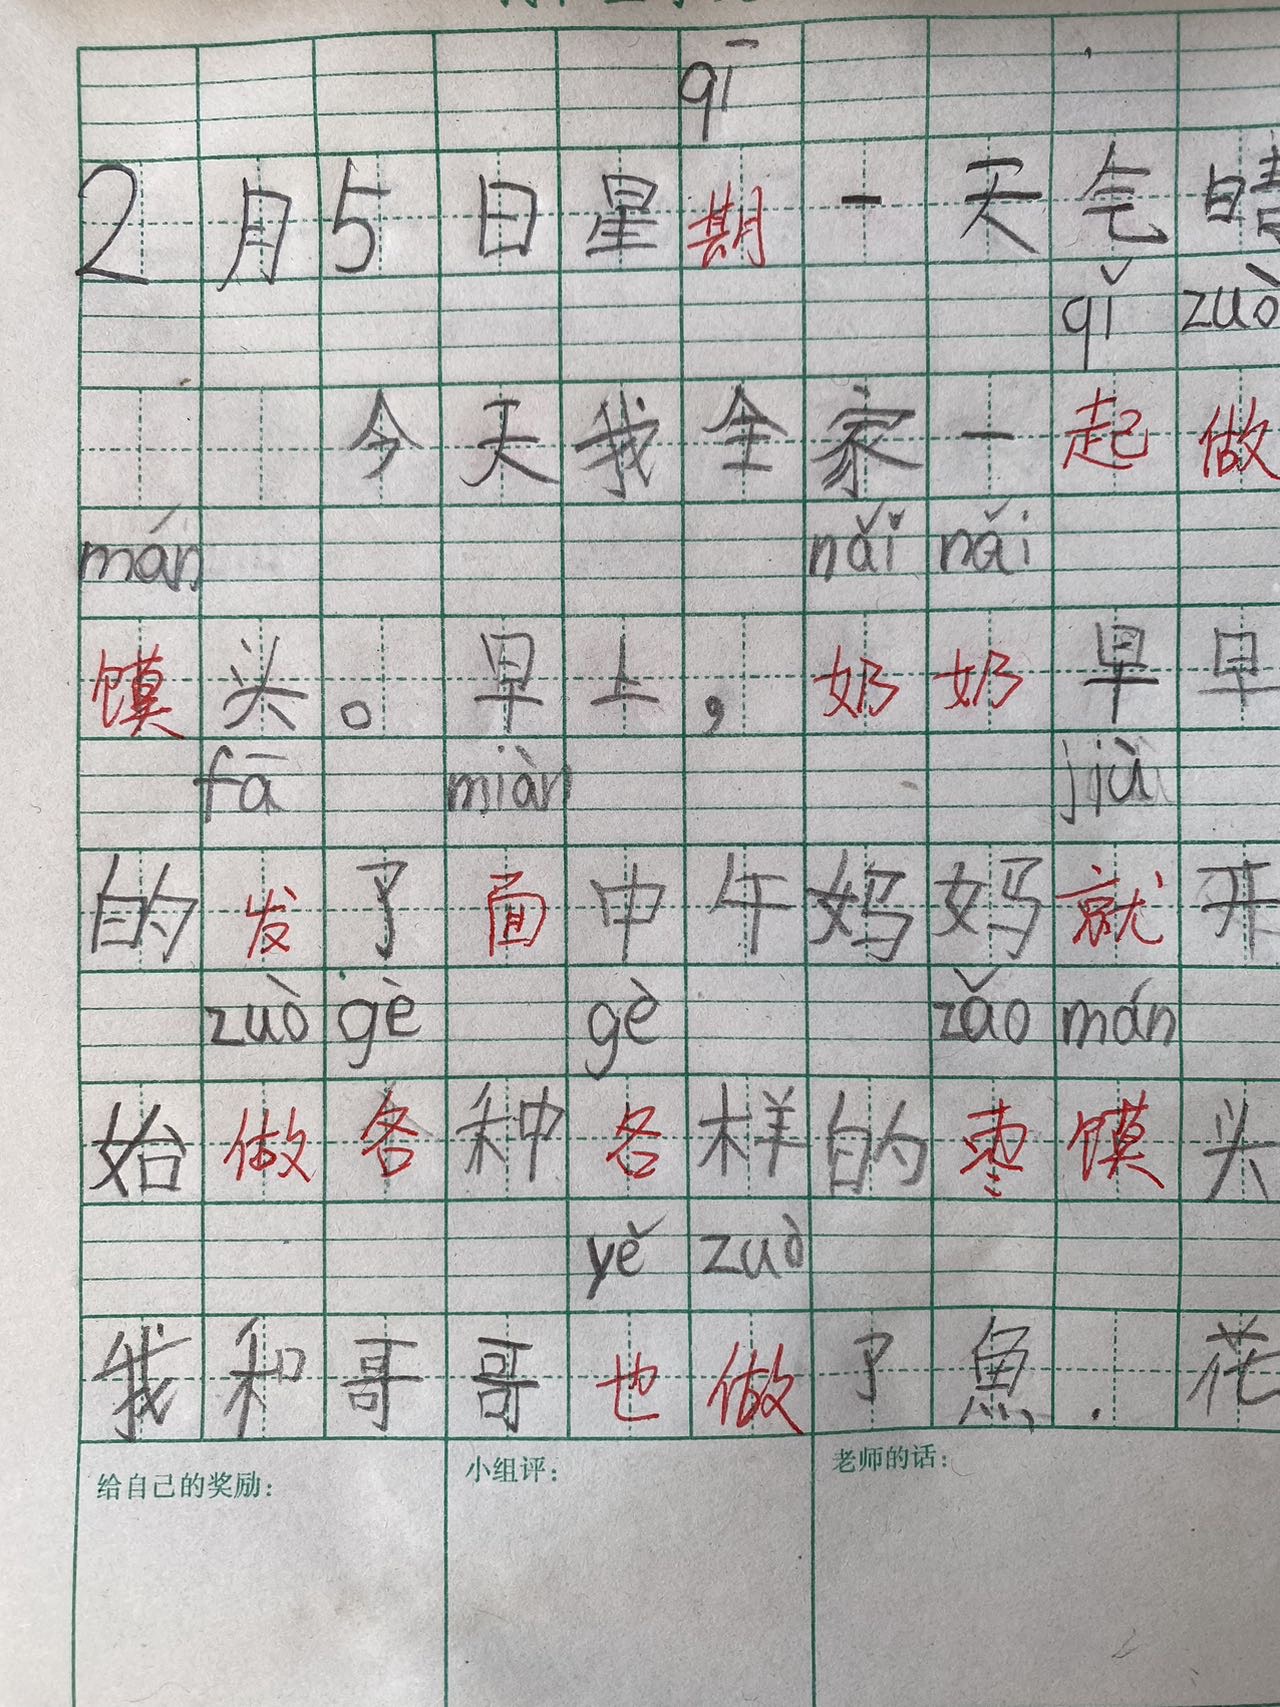 qī
2月5日星期一天气晴
qǐ zuò
今天我全家一起做
mán nǎi nǎi
馍头。早上，奶奶早早
fā miàn jiù
的发了面中午妈妈就开
zuò gè gè zǎo mán
始做各种各样的枣馍头
yě zuò
我和哥哥也做了魚.花
给自己的奖励： 小组评： 老师的话：